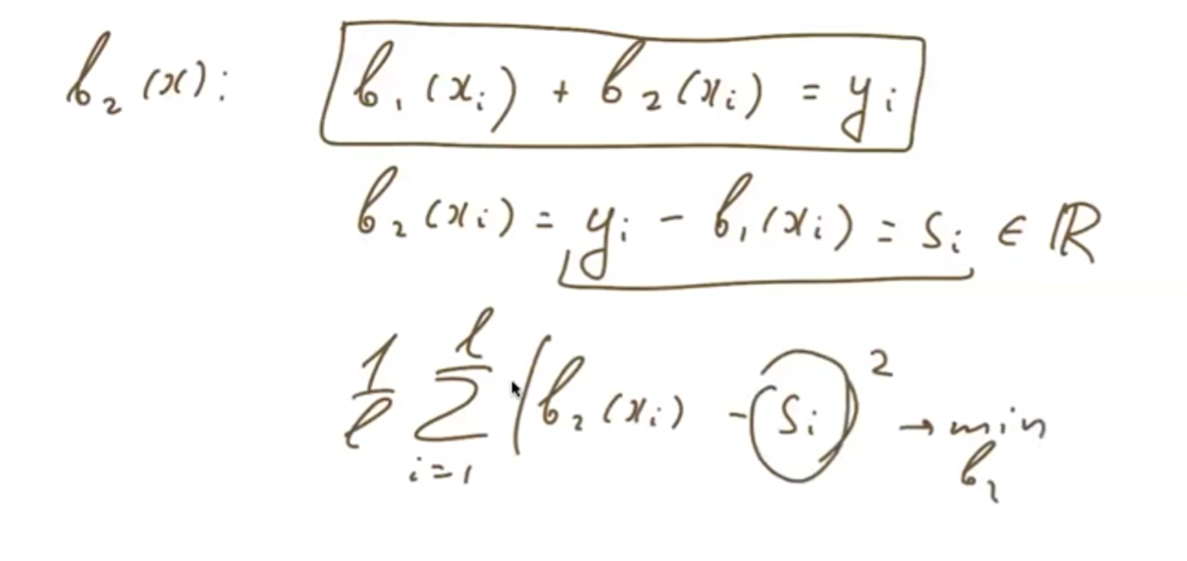 b₂(x): b₁(xᵢ) + b₂(xᵢ) = yᵢ
b₂(xᵢ) = yᵢ - b₁(xᵢ) = sᵢ ∈ ℝ
1/ℓ ∑ᵢ₌₁^ℓ (b₂(xᵢ) - sᵢ)² → min b₂